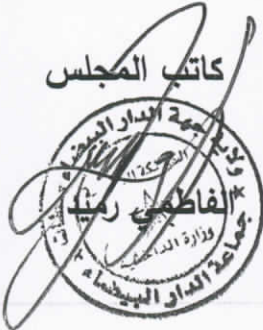 كاتب المجلس
الفاطمي رميد
ولاية جهة الدار البيضاء
المملكة
وزارة الداخلية
جماعة الدار البيضاء